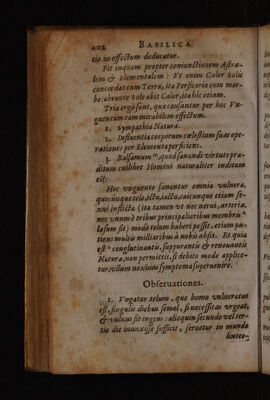 402 BASILICA
tio in effectum deducatur.
Fit inquam propter coniunctionem Astra-
lem & Elementalem: Vt enim Calor Solis
concordat cum Terra, ita Persicaria cum mor-
bo: abeunte Sole abit Calor, ita hic etiam.
Tria ergo sunt, quæ causantur per hoc Vn-
guentum tam mirabilem effectum.
1. Sympathia Naturæ.
2. Influentia corporum cœlestium suas ope-
rationes per Elementa perficiens.
3. Balsamum, quod sanandi virtute præ-
ditum cuilibet Homini naturaliter inditum
est:
Hoc vnguento sanantur omnia vulnera,
quocunque telo, ictu, iactu, cuiuscunque etiam se-
xui inflicta (ita tamen vt nec nerui, arteria,
nec vnum è tribus principalioribus membris
læsum sit) modò telum haberi possit, etiam pa-
tiens multis milliaribus à nobis absit. Et quia
est conglutinantis, suppurantis & renouantis
Naturæ, non permittit, si debito modo applice-
tur, vllum noxium symptoma superuenire.
Obseruationes.
1. Vngatur telum, quo homo vulneratus
est, singulis diebus semel, si necessitas vrgeat,
& vulnus sit ingens: alioquin secundo vel ter-
tio die inunxisse sufficit, seruetur in mundo
lintea-